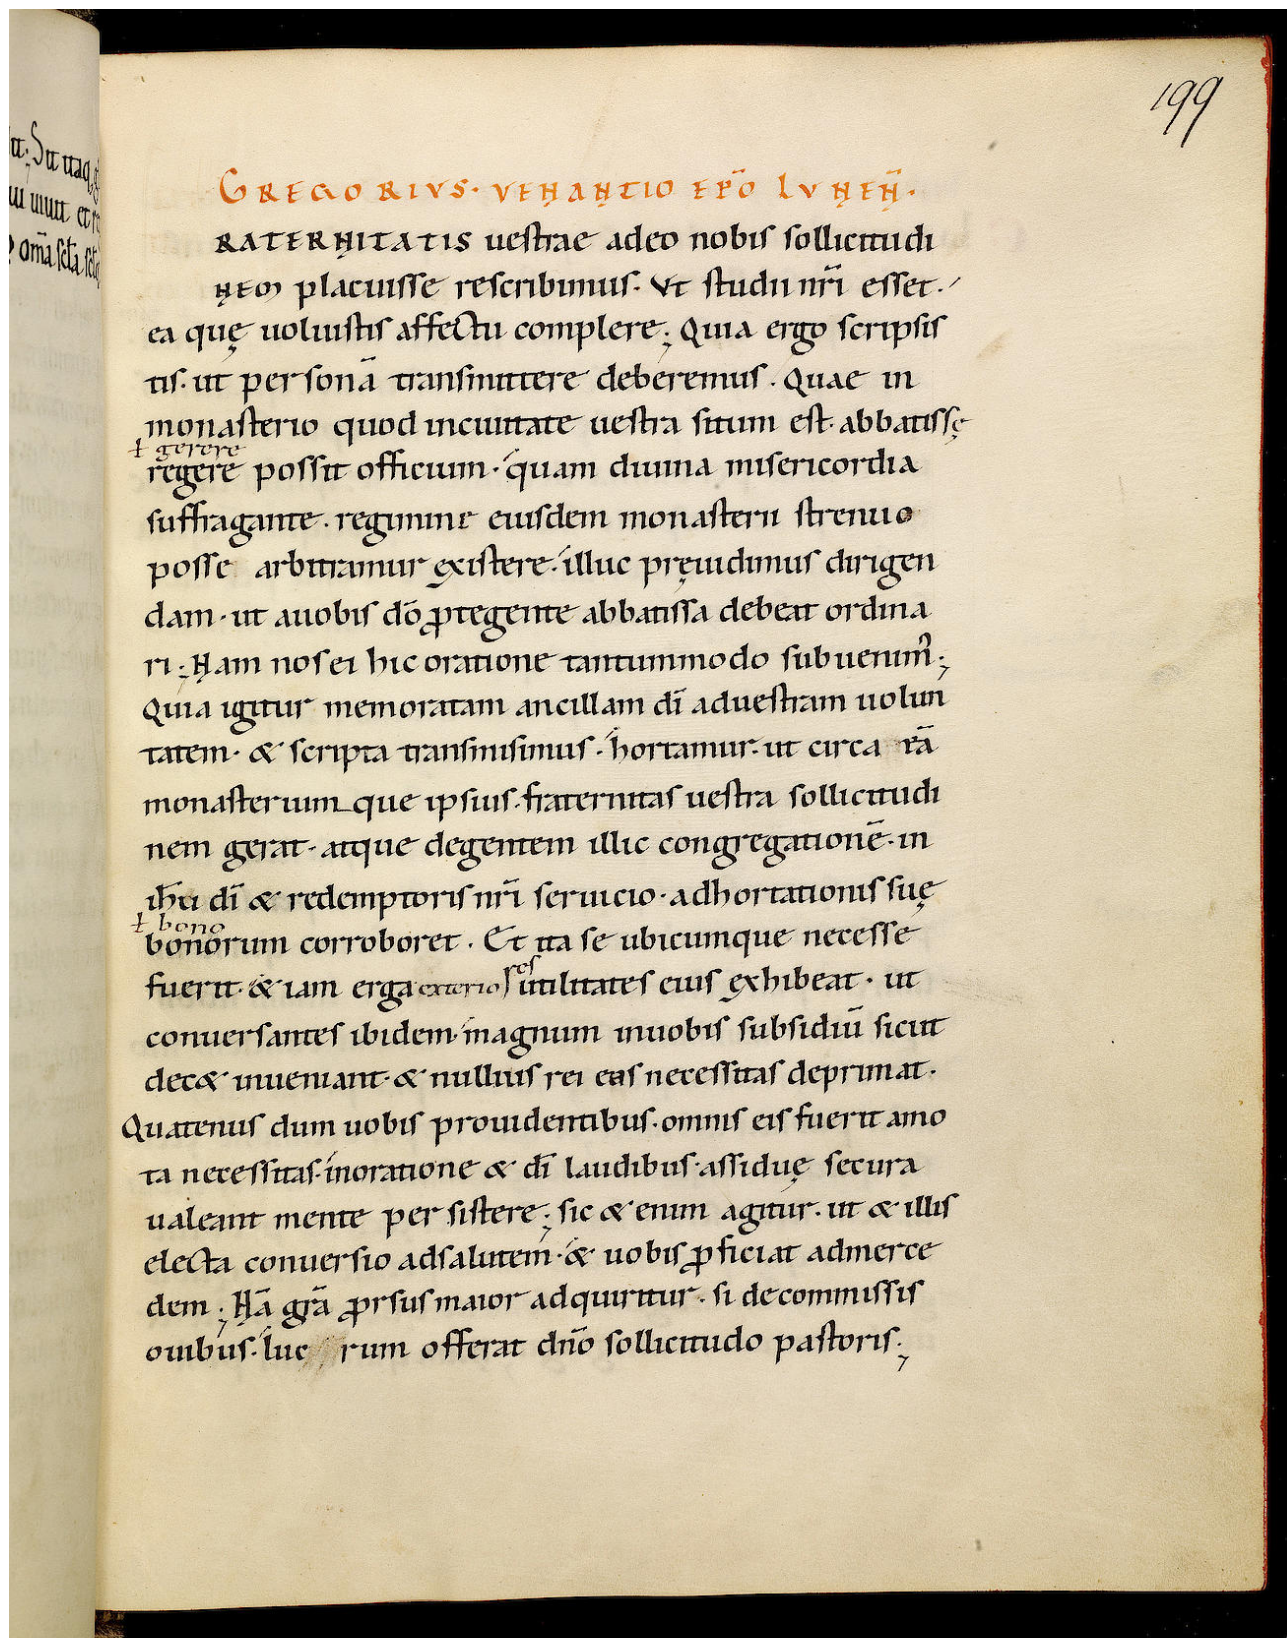 199
GREGORIVS· VENANTIO EPO LVNEN·
RATERNITATIS uestrae adeo nobis sollicitudi
NEM placuisse rescribimus. Vt studii nri esset·
ea quę uoluistis affectu complere; Quia ergo scripsis
tis· ut personā transmittere deberemus. Quae in
monasterio quod inciuitate uestra situm est· abbatissę
ł gerere
regere possit officium· quam diuina misericordia
suffragante· regimine eiusdem monasterii strenuo
posse arbitramur ęxistere· illuc pręuidimus dirigen
dam· ut auobis dō ꝓtegente abbatissa debeat ordina
ri; Nam nos ei hic oratione tantummodo subuenim᷒;
Quia igitur memoratam ancillam dī aduestram uolun
tatem· & scripta transmisimus· hortamur· ut circa eā
monasterium que ipsius· fraternitas uestra sollicitudi
nem gerat· atque degentem illic congregationē· in
ihu dī & redemptoris nri seruicio· adhortationis suę
ł bono
bonorum corroboret. Et ita se ubicumque necesse
fuerit· & iam erga exteriores utilitates eius ęxhibeat· ut
conuersantes ibidem· magnum inuobis subsidiū sicut
dec& inueniant· & nullius rei eas necessitas deprimat·
Quatenus dum uobis prouidentibus· omnis eis fuerit amo
ta necessitas· inoratione & dī laudibus· assiduę secura
ualeant mente persistere; sic & enim agitur· ut & illis
electa conuersio adsalutem· & uobis ꝓficiat admerce
dem; Nā grā ꝓrsus maior adquiritur· si decommissis
ouibus· luc rum offerat dn̄o sollicitudo pastoris;